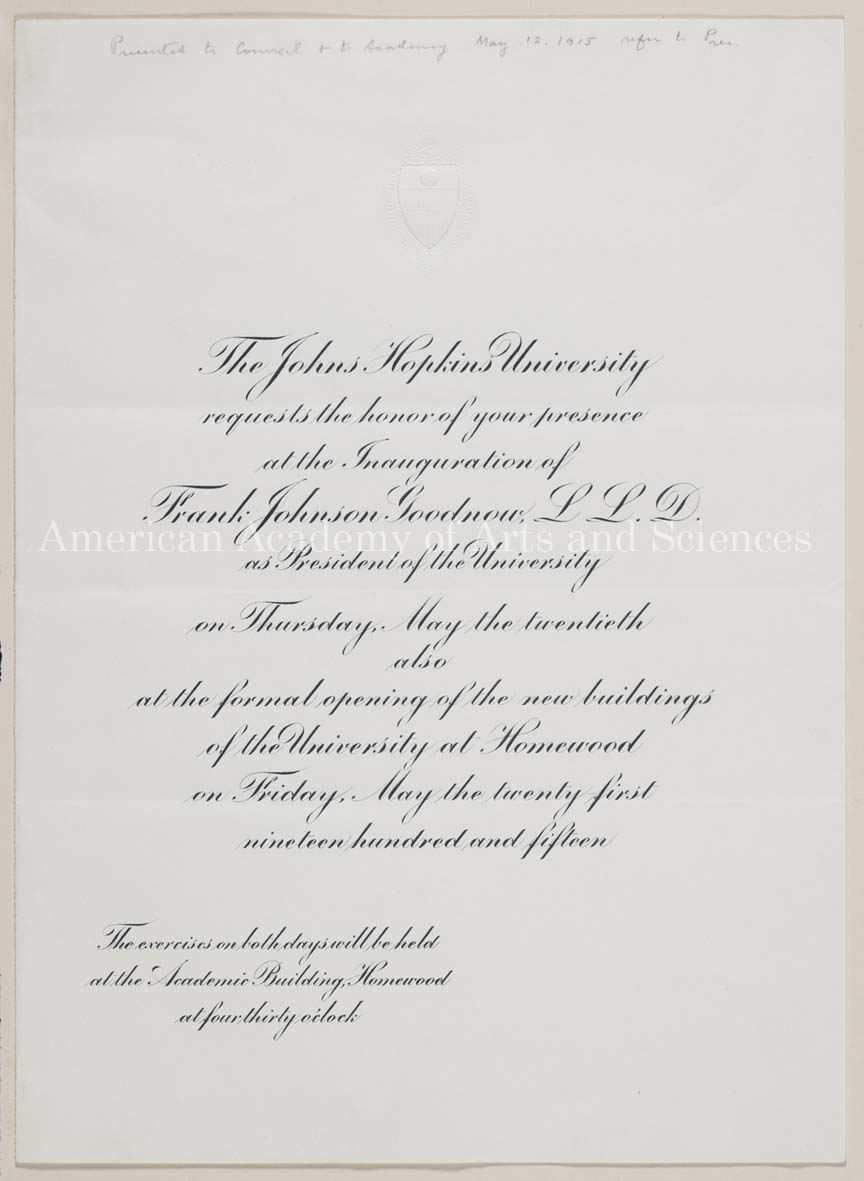 Presented to Council + to Academy May 12. 1915 refer to Pres.
The Johns Hopkins University
requests the honor of your presence
at the Inauguration of
Frank Johnson Goodnow, L L. D.
American Academy of Arts and Sciences
as President of the University
on Thursday, May the twentieth
also
at the formal opening of the new buildings
of the University at Homewood
on Friday, May the twenty-first
nineteen hundred and fifteen
The exercises on both days will be held
at the Academic Building, Homewood
at four thirty o'clock